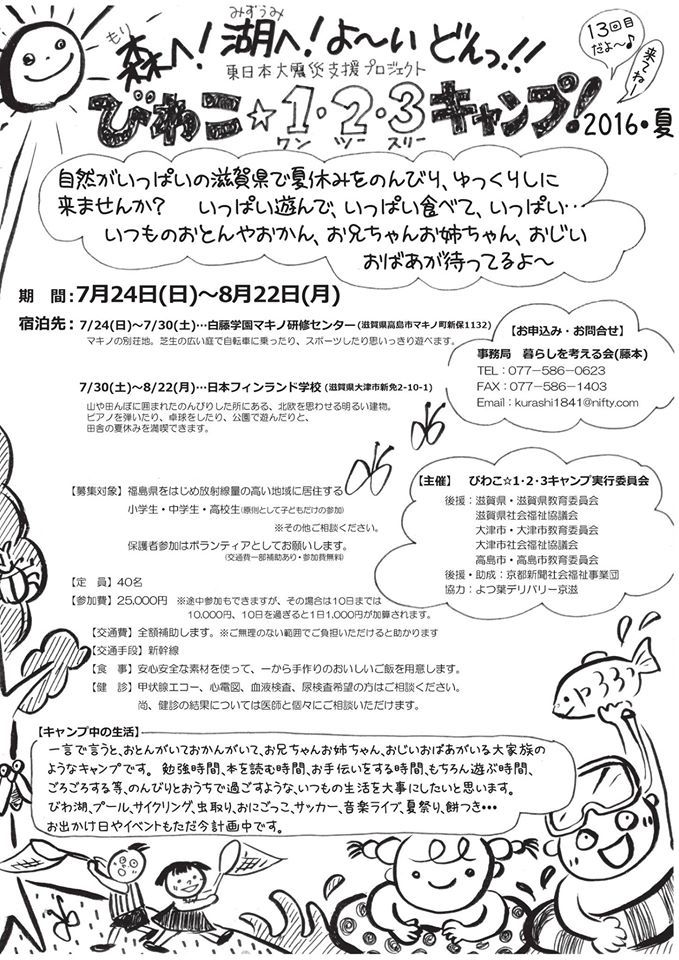 みずうみ
もり
森へ!湖へ!よ〜いどんっ!!
13回目だよ〜♪
来てねー
東日本大震災支援プロジェクト
びわこ☆1・2・3キャンプ!2016・夏
ワン ツー スリー
自然がいっぱいの滋賀県で夏休みをのんびり、ゆっくりしに
来ませんか? いっぱい遊んで、いっぱい食べて、いっぱい…
いつものおとんやおかん、お兄ちゃんお姉ちゃん、おじい
おばあが待ってるよ〜
期 間:7月24日(日)〜8月22日(月)
宿泊先:7/24(日)〜7/30(土)…白藤学園マキノ研修センター(滋賀県高島市マキノ町新保1132)
マキノの別荘地。芝生の広い庭で自転車に乗ったり、スポーツしたり思いっきり遊べます。
7/30(土)〜8/22(月)…日本フィンランド学校(滋賀県大津市新免2-10-1)
山や田んぼに囲まれたのんびりした所にある、北欧を思わせる明るい建物。
ピアノを弾いたり、卓球をしたり、公園で遊んだりと、
田舎の夏休みを満喫できます。
【お申込み・お問合せ】
事務局 暮らしを考える会(藤本)
TEL:077−586−0623
FAX:077−586−1403
Email:kurashi1841@nifty.com
【募集対象】福島県をはじめ放射線量の高い地域に居住する
小学生・中学生・高校生(原則として子どもだけの参加)
※その他ご相談ください。
保護者参加はボランティアとしてお願いします。
(交通費一部補助あり・参加費無料)
【主催】 びわこ☆1・2・3キャンプ実行委員会
後援:滋賀県・滋賀県教育委員会
滋賀県社会福祉協議会
大津市・大津市教育委員会
大津市社会福祉協議会
高島市・高島市教育委員会
後援・助成:京都新聞社会福祉事業団
協力:よつ葉デリバリー京滋
【定 員】40名
【参加費】25.000円 ※途中参加もできますが、その場合は10日までは
10.000円、10日を過ぎると1日1.000円が加算されます。
【交通費】全額補助します。※ご無理のない範囲でご負担いただけると助かります
【交通手段】新幹線
【食 事】安心安全な素材を使って、一から手作りのおいしいご飯を用意します。
【健 診】甲状腺エコー、心電図、血液検査、尿検査希望の方はご相談ください。
尚、健診の結果については医師と個々にご相談いただけます。
【キャンプ中の生活】
一言で言うと、おとんがいておかんがいて、お兄ちゃんお姉ちゃん、おじいおばあがいる大家族の
ようなキャンプです。 勉強時間、本を読む時間、お手伝いをする時間、もちろん遊ぶ時間、
ごろごろする等、のんびりとおうちで過ごすような、いつもの生活を大事にしたいと思います。
びわ湖、プール、サイクリング、虫取り、おにごっこ、サッカー、音楽ライブ、夏祭り、餅つき・・・
お出かけ日やイベントもただ今計画中です。